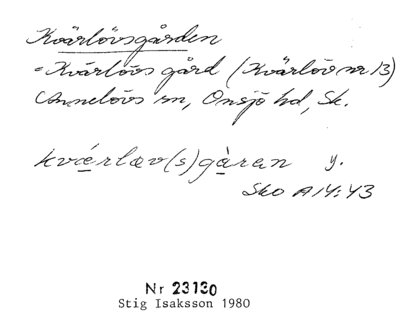 Kvärlövsgården
= Kvärlövs gård (Kvärlöv nr 13)
Annelövs sn, Onsjö hd, Sk.
kvǽrlæv(s)gàran y.
Sko A14:43
Nr 23130
Stig Isaksson 1980